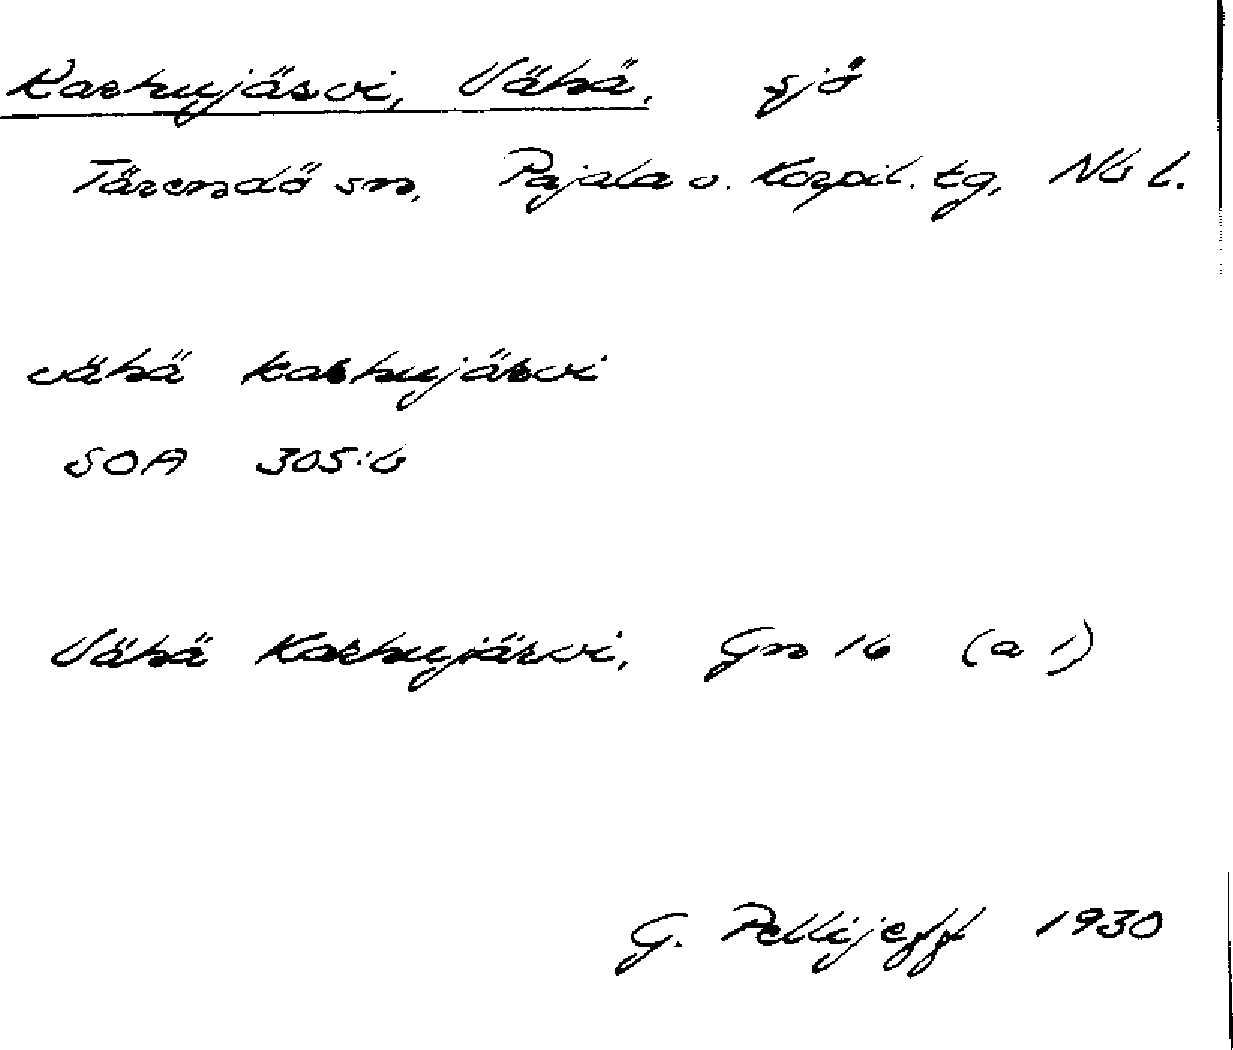 Karhujärvi, Vähä, sjö
Tärendö sn, Pajala o. Korpil. tg, Nb l.
vähä karhujärvi
SOA 305:6
Vähä Karhujärvi, Gn 16 (a 1)
G. Pellijeff 1930